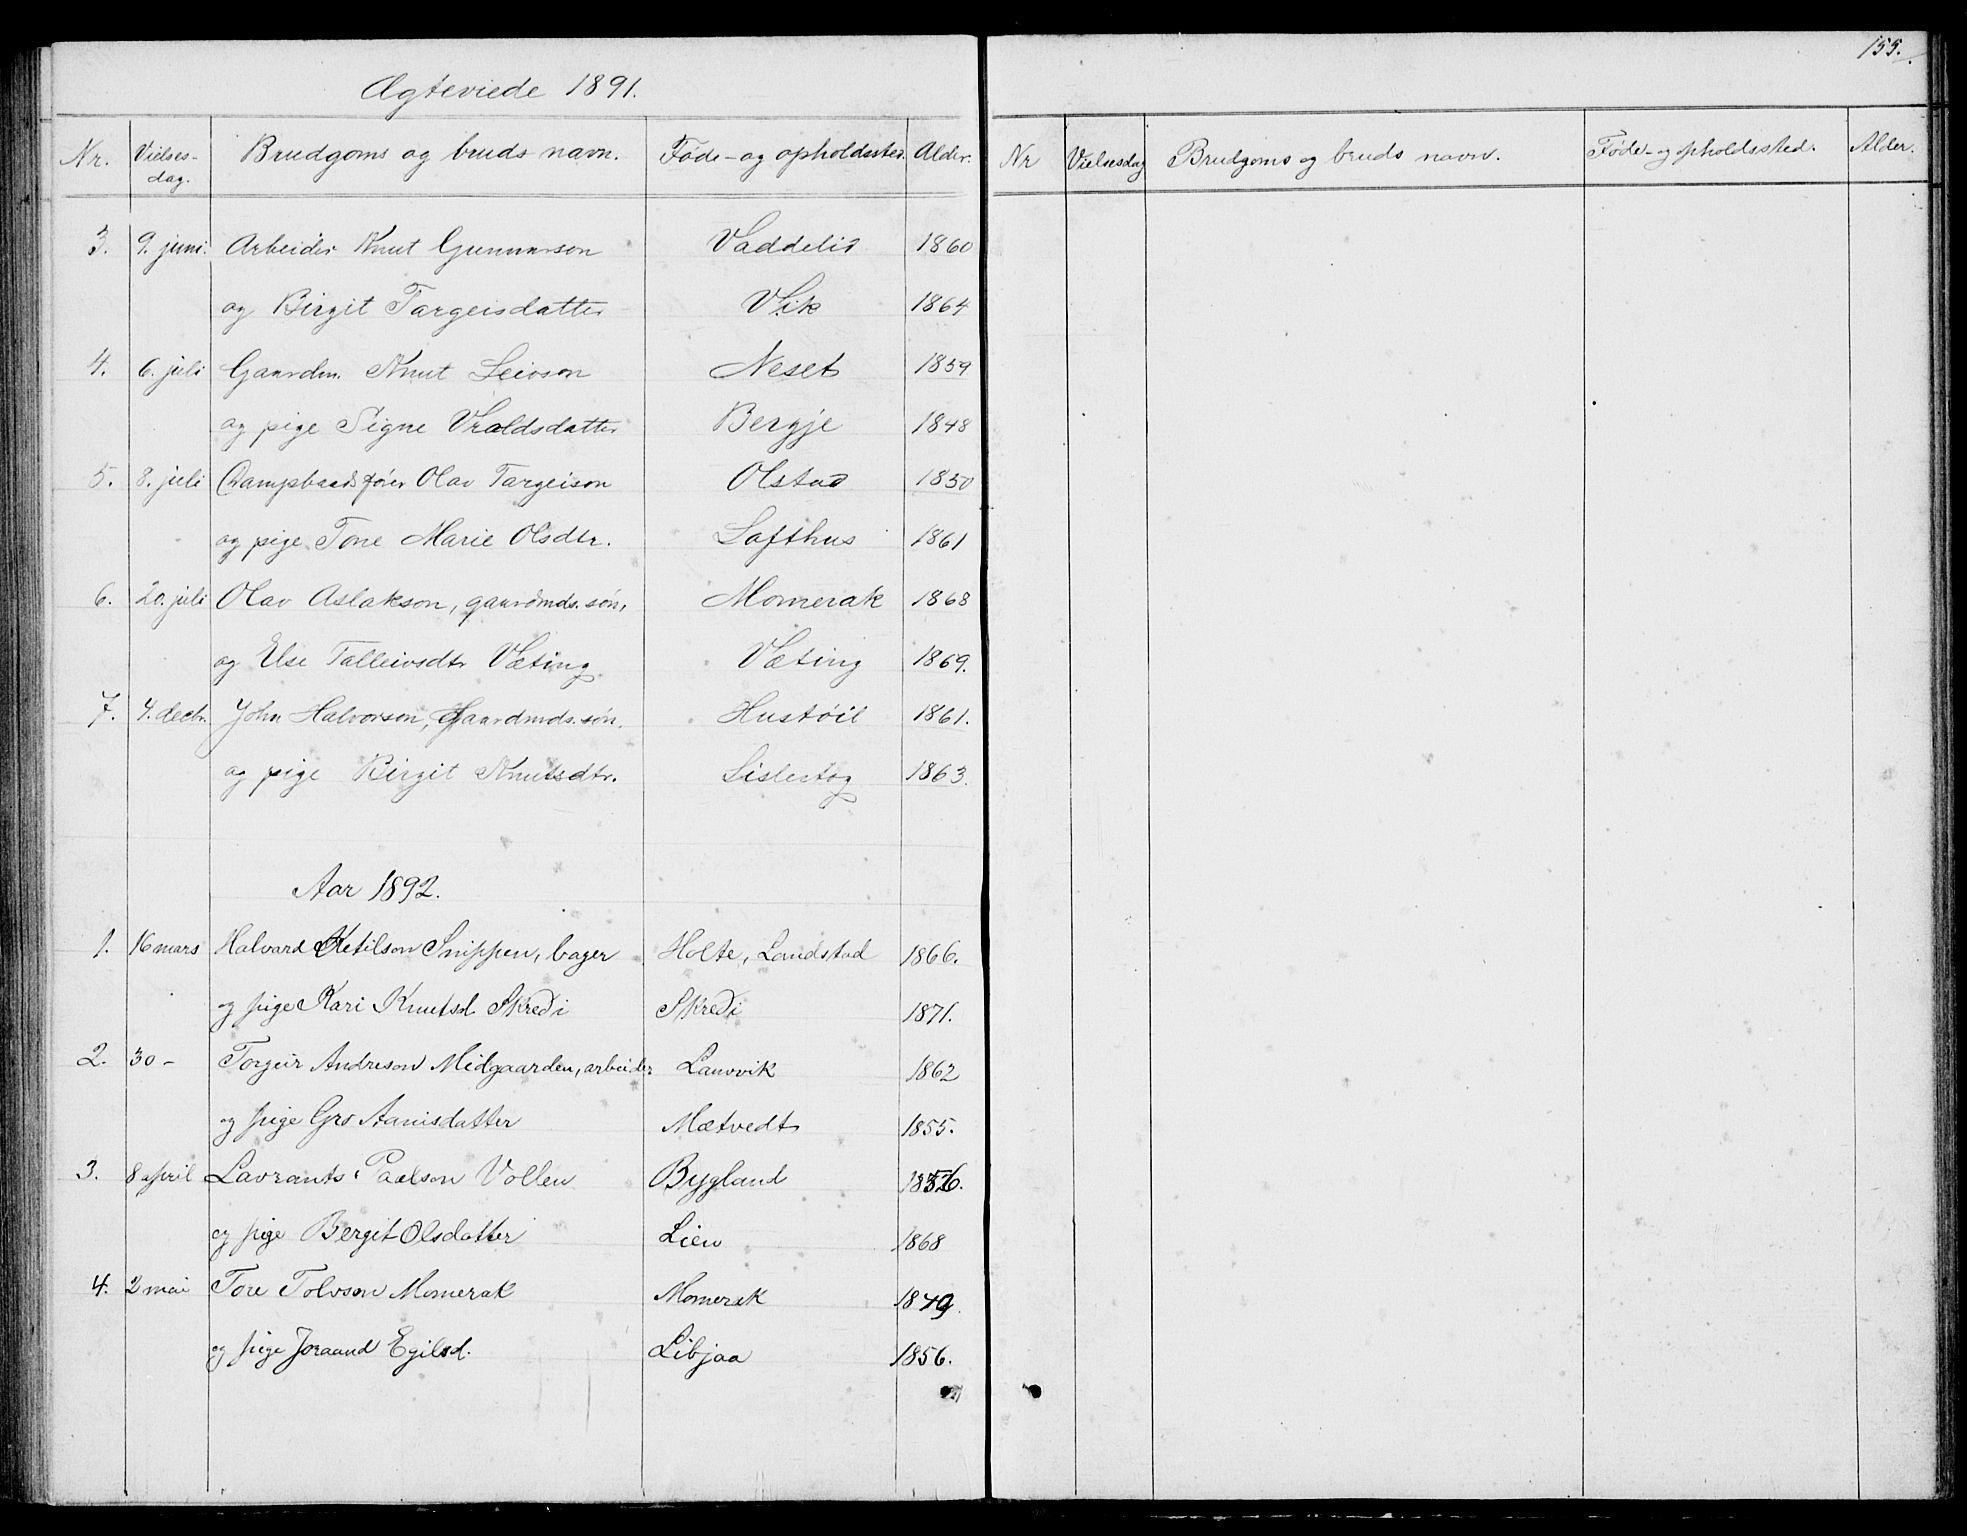 Ægteviede 1891.
Nr. Vielses-dag. Brudgoms og bruds navn. Føde- og opholdssted. Alder.
3. 9. juni. Arbeider Knut Gunnarson Vaddelid 1860
og Birgit Targeisdatter Vik 1864
4. 6. juli Gaardm. Knut Leivson Neset 1859
og pige Signe Vraldsdatter Bergje 1848
5. 8. juli Dampbaadsfører Olav Targeison Olstad 1850
og pige Tone Marie Olsdtr. Lofthus 1861
6. 20. juli Olav Aslakson, gaardmds. søn, Momerak 1868
og Else Talleivsdtr Væting Væting 1869.
7. 4. decbr. John Halvorson, Gaardmds. søn. Hustøil 1861.
og pige Birgit Knutsdtr. Lislestog 1863.
Aar 1892.
1. 16 mars Halvard Ketilson Snippen, bager Holte, Landstad 1866.
og pige Kari Knutsd. Skredi Skredi 1871.
2. 30 - Torgeir Andreson Midgaarden, arbeider Lauvvik 1862
og pige Gro Aanisdatter Mætvedt 1855.
3. 8 april Lavrants Paalson Vollen Bygland 1856.
og pige Bergit Olsdatter Lien 1868
4. 2 mai Tore Tolvson Momerak Momerak 1849.
og pige Joraand Egilsd. Libjaa 1856.
155.
Nr Vielsesdag Brudgoms og bruds navn. Føde- og opholdssted. Alder.